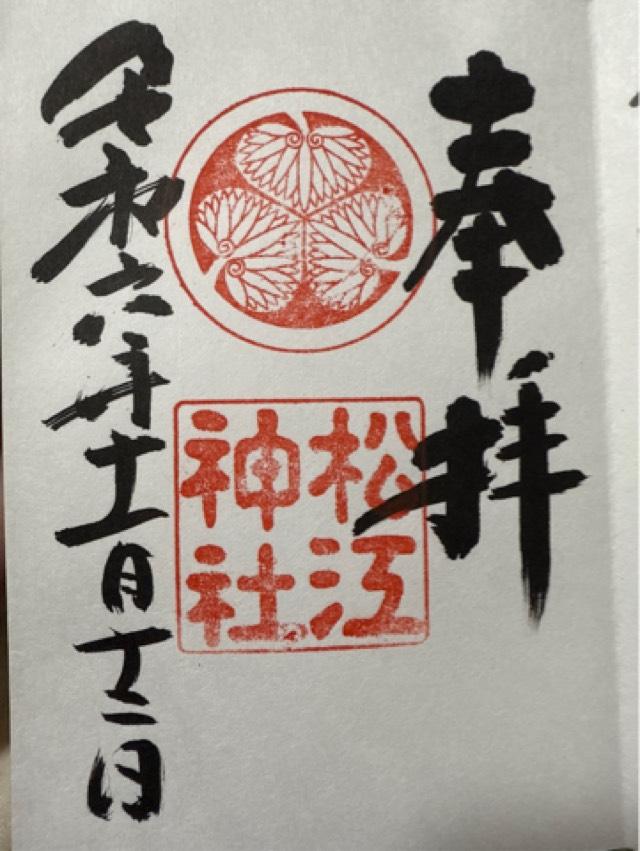 奉拝
松江
神社
令和六年十一月十二日